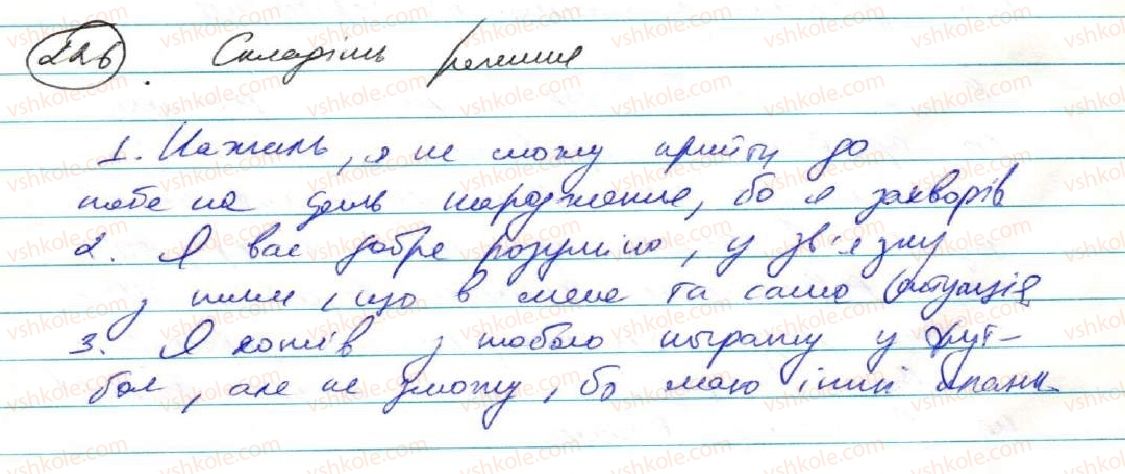 226. Складіть речення
1. На жаль, я не можу прийти до
тебе на день народження, бо я захворів
2. Я вас добре розумію, у зв'язку
з тим, що в мене та сама ситуація
3. Я хотів з тобою пограти у фут-
бол, але не зможу, бо маю інші плани